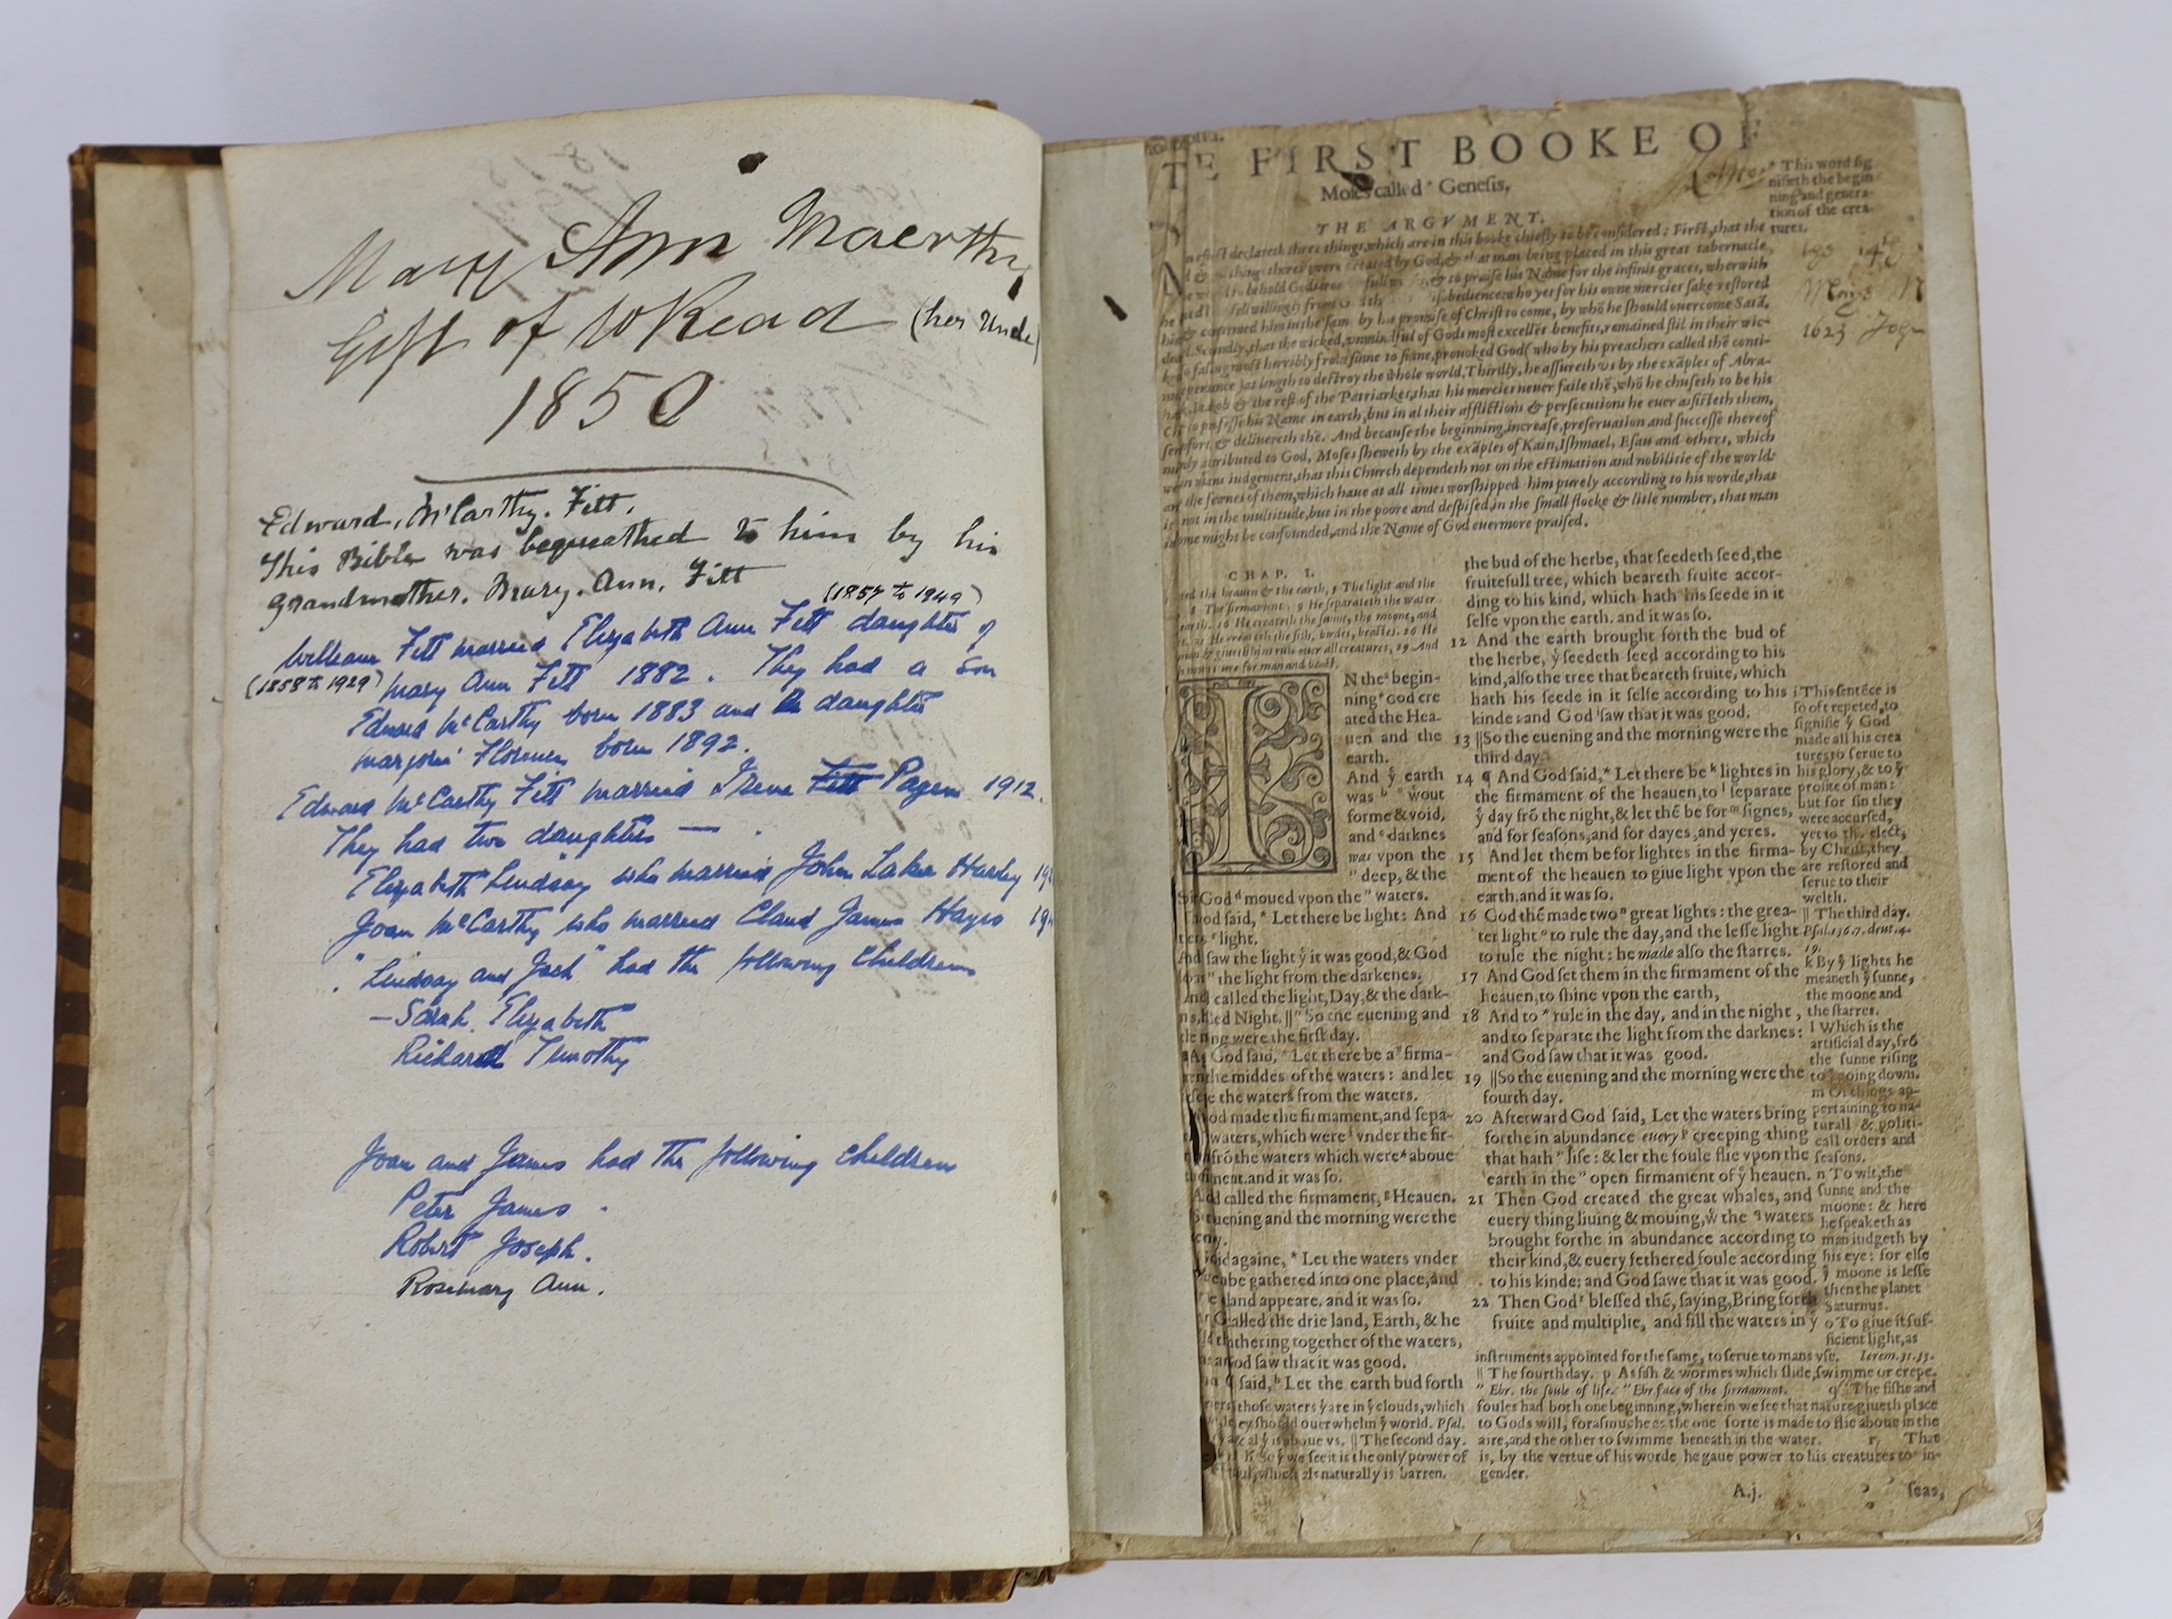 Mary Ann Macarthy
Gift of W Read (her Uncle)
1850
Edward. McCarthy. Fitt.
This Bible was bequeathed to him by his
Grandmother. Mary. Ann. Fitt
(1857 to 1949)
William Fitt married Elizabeth Ann Fitt daughter of
(1858 to 1929) Mary Ann Fitt 1882. They had a son
Edward McCarthy born 1883 and daughter
Marjorie Florence born 1892.
Edward McCarthy Fitt married Irene Fitt 1912.
They had two daughters —
Elizabeth Lindsay who married John
Joan McCarthy who married Claud James
"Lindsay and Jack" had the following children
— Sarah Elizabeth
Richard Timothy
Joan and James had the following children
Peter James
Robert Joseph.
Rosemary Ann.
FIRST BOOKE OF
Moses called * Genesis,
* This word sig
nifieth the begin
ning and genera-
tion of the crea-
tures.
14th
1623
THE ARGVMENT.
declareth three things, which are in this booke chiefly to be considered: First, that the
created by God, & that man being placed in this great tabernacle
to behold Gods & to praise his Name for the infinit graces, wherwith
willingly from who yet for his owne mercies sake restored
continued him in the same by his promise of Christ to come, by whō he should ouercome Satā,
Secondly, that the wicked, vnmindful of Gods most excellēt benefits, remained stil in their wic-
falling most horribly from sinne to sinne, prouoked God (who by his preachers called thē conti-
at length to destroy the whole world. Thirdly, he assureth vs by the exāples of Abra-
Iaakob & the rest of the Patriarkes, that his mercies neuer faile thē, whō he chuseth to be his
to professe his Name in earth, but in al their afflictions & persecutions he euer assisteth them,
& deliuereth thē. And because the beginning, increase, preseruation and successe thereof
attributed to God, Moses sheweth by the exāples of Kain, Ishmael, Esau and others, which
mans iudgement, that this Church dependeth not on the estimation and nobilitie of the world:
the fewnes of them, which haue at all times worshipped him purely according to his worde, that
not in the multitude, but in the poore and despised, in the small flocke & litle number, that man
might be confounded, and the Name of God euermore praised.
CHAP. I.
the heauen & the earth, 3 The light and the
The firmament, 9 He separateth the water
earth. 16 He createth the sunne, the moone, and
He createth the fish, birdes, beastes. 26 He
man & giueth him rule ouer all creatures, 29 And
for man and beast.
N the * begin-
ning * God cre
ated the Hea-
uen and the
earth.
And yͤ earth
was wͭout
forme & void,
and darknes
was vpon the
" deep, & the
God moued vpon the " waters.
God said, * Let there be light: And
light.
And saw the light yͭ it was good, & God
" the light from the darkenes.
And called the light, Day, & the dark-
Night. || " So the euening and
were the first day.
God said, * Let there be a firma-
the middes of the waters: and let
the waters from the waters.
God made the firmament, and sepa-
waters, which were vnder the fir-
frō the waters which were * aboue
and it was so.
And called the firmament, Heauen.
euening and the morning were the
againe, * Let the waters vnder
be gathered into one place, and
land appeare. and it was so.
called the drie land, Earth, & he
gathering together of the waters,
God saw that it was good.
said, Let the earth bud forth
those waters yͭ are in yͤ clouds, which
they should ouerwhelm yͤ world. Psal.
is aboue vs. || The second day.
So yͭ we see it is the only power of
which als naturally is barren.
the bud of the herbe, that seedeth seed, the
fruitefull tree, which beareth fruite accor-
ding to his kind, which hath his seede in it
selfe vpon the earth. and it was so.
12 And the earth brought forth the bud of
the herbe, yͭ seedeth seed according to his
kind, also the tree that beareth fruite, which
hath his seede in it selfe according to his
kinde: and God saw that it was good.
13 || So the euening and the morning were the
third day.
14 ¶ And God said, * Let there be lightes in
the firmament of the heauen, to separate
yͤ day frō the night, & let thē be for signes,
and for seasons, and for dayes, and yeres.
15 And let them be for lightes in the firma-
ment of the heauen to giue light vpon the
earth. and it was so.
16 God thē made two great lights: the grea-
ter light to rule the day, and the lesse light
to rule the night: he made also the starres.
17 And God set them in the firmament of the
heauen, to shine vpon the earth,
18 And to * rule in the day, and in the night,
and to separate the light from the darknes:
and God saw that it was good.
19 || So the euening and the morning were the
fourth day.
20 Afterward God said, Let the waters bring
forthe in abundance euery creeping thing
that hath " life: & let the foule flie vpon the
earth in the " open firmament of yͤ heauen.
21 Then God created the great whales, and
euery thing liuing & mouing, wͨ the waters
brought forthe in abundance according to
their kind, & euery fethered foule according
to his kinde: and God sawe that it was good.
22 Then God blessed thē, saying, Bring forth
fruite and multiplie, and fill the waters in yͤ
i This sentēce is
so oft repeted, to
signifie yͭ God
made all his crea
tures to serue to
his glory, & to yͤ
profite of man:
but for sin they
were accursed,
yet to the elect,
by Christ, they
are restored and
serue to their
welth.
|| The third day.
Psal. 136.7. deut. 4.
19.
k By yͤ lights he
meaneth yͤ sunne,
the moone and
the starres.
l Which is the
artificial day, frō
the sunne rising
to going down.
m Of things ap-
pertaining to na-
turall & politi-
call orders and
seasons.
n To wit, the
sunne and the
moone: & here
he speaketh as
man iudgeth by
his eye: for else
yͤ moone is lesse
then the planet
Saturnus.
o To giue it suf-
ficient light, as
instruments appointed for the same, to serue to mans vse. Ierem. 31.35.
|| The fourth day. p As fish & wormes which slide, swimme or crepe.
" Ebr. the soule of life. " Ebr face of the firmament. q The fishe and
foules had both one beginning, wherein we see that nature giueth place
to Gods will, forasmuche as the one sorte is made to flie aboue in the
aire, and the other to swimme beneath in the water. r That
is, by the vertue of his worde he gaue power to his creatures to in-
gender.
A.j. seas,